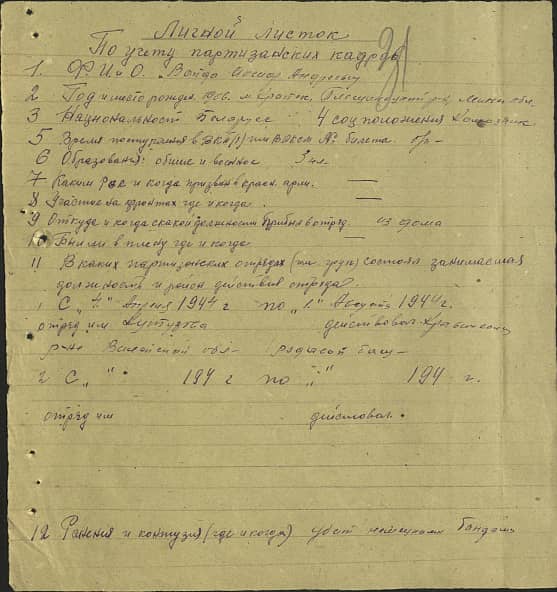 Личной листок
По учету партизанских кадров
1. Ф. И и О. Войда Андреевич
2 Год и место рожден. м Плещеницкий р-н, Минск обл.
3 Национальность Беларусс 4 соц положения Колхозник
5 Время поступления в ВКП(б) или ВЛКСМ № билета. б/п-
6 Образования: общее и военное 3 кл.
7 Каким РВК и когда призван в красн. арм. —
8 Участие на фронтах где и когда. —
9 Откуда и когда с какой должности прибыл в отряд. из дома
10 Были в плену где и когда —
11 В каких партизанских отрядах (или групп) состоял занимаемая
должность и район действия отряда.
1 С „4" Апреля 1944 г по Августа 1944 г.
отряд им. Кутузова действовал
р-не Вилейской обл- рядовой боец-
2 С „ " 194 г по „ " 194 г.
отряд им действовал.
12 Ранения и контузия (где и когда) убит немецкими бандами